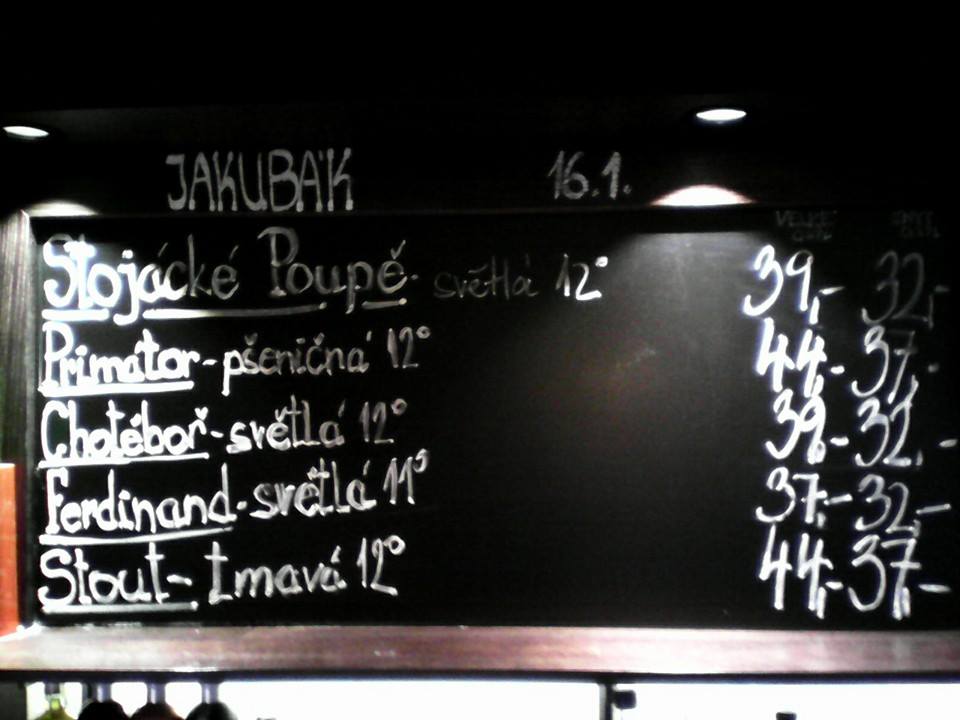 JAKUBÁK 16.1.
Stojácké Poupě - světlá 12° 39,- 32,-
Primátor - pšeničná 12° 44,- 37,-
Chotěboř - světlá 12° 39,- 32,-
Ferdinand - světlá 11° 37,- 32,-
Stout - tmavá 12° 44,- 37,-